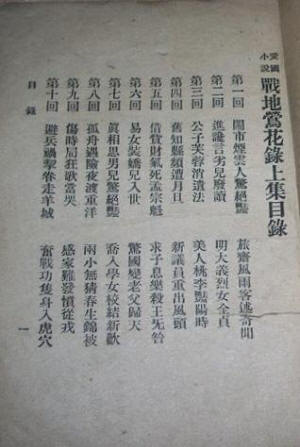 愛國小說 戰地鶯花錄上集目錄
第一回 鬧市煙雲人驚絕艷 旅齋風雨客述奇聞
第二回 進讒言劣兒廢讀 明大義烈女全貞
第三回 公子芙蓉消遺法 美人桃李艷陽時
第四回 舊知縣頻遭月旦 新議員重出風頭
第五回 借貲財氣死孟宗魁 求子息樂殺王旡咎
第六回 易女裝嬌兒入世 驚國變老父歸天
第七回 眞相思男兒驚絕艷 喬入學女校結新歡
第八回 孤舟遇險夜渡重洋 兩小無猜春生錦被
第九回 傷時局狂歌當哭 感家難發憤從戎
第十回 避兵禍挈眷走羊城 奮戰功隻身入虎穴
目錄
一